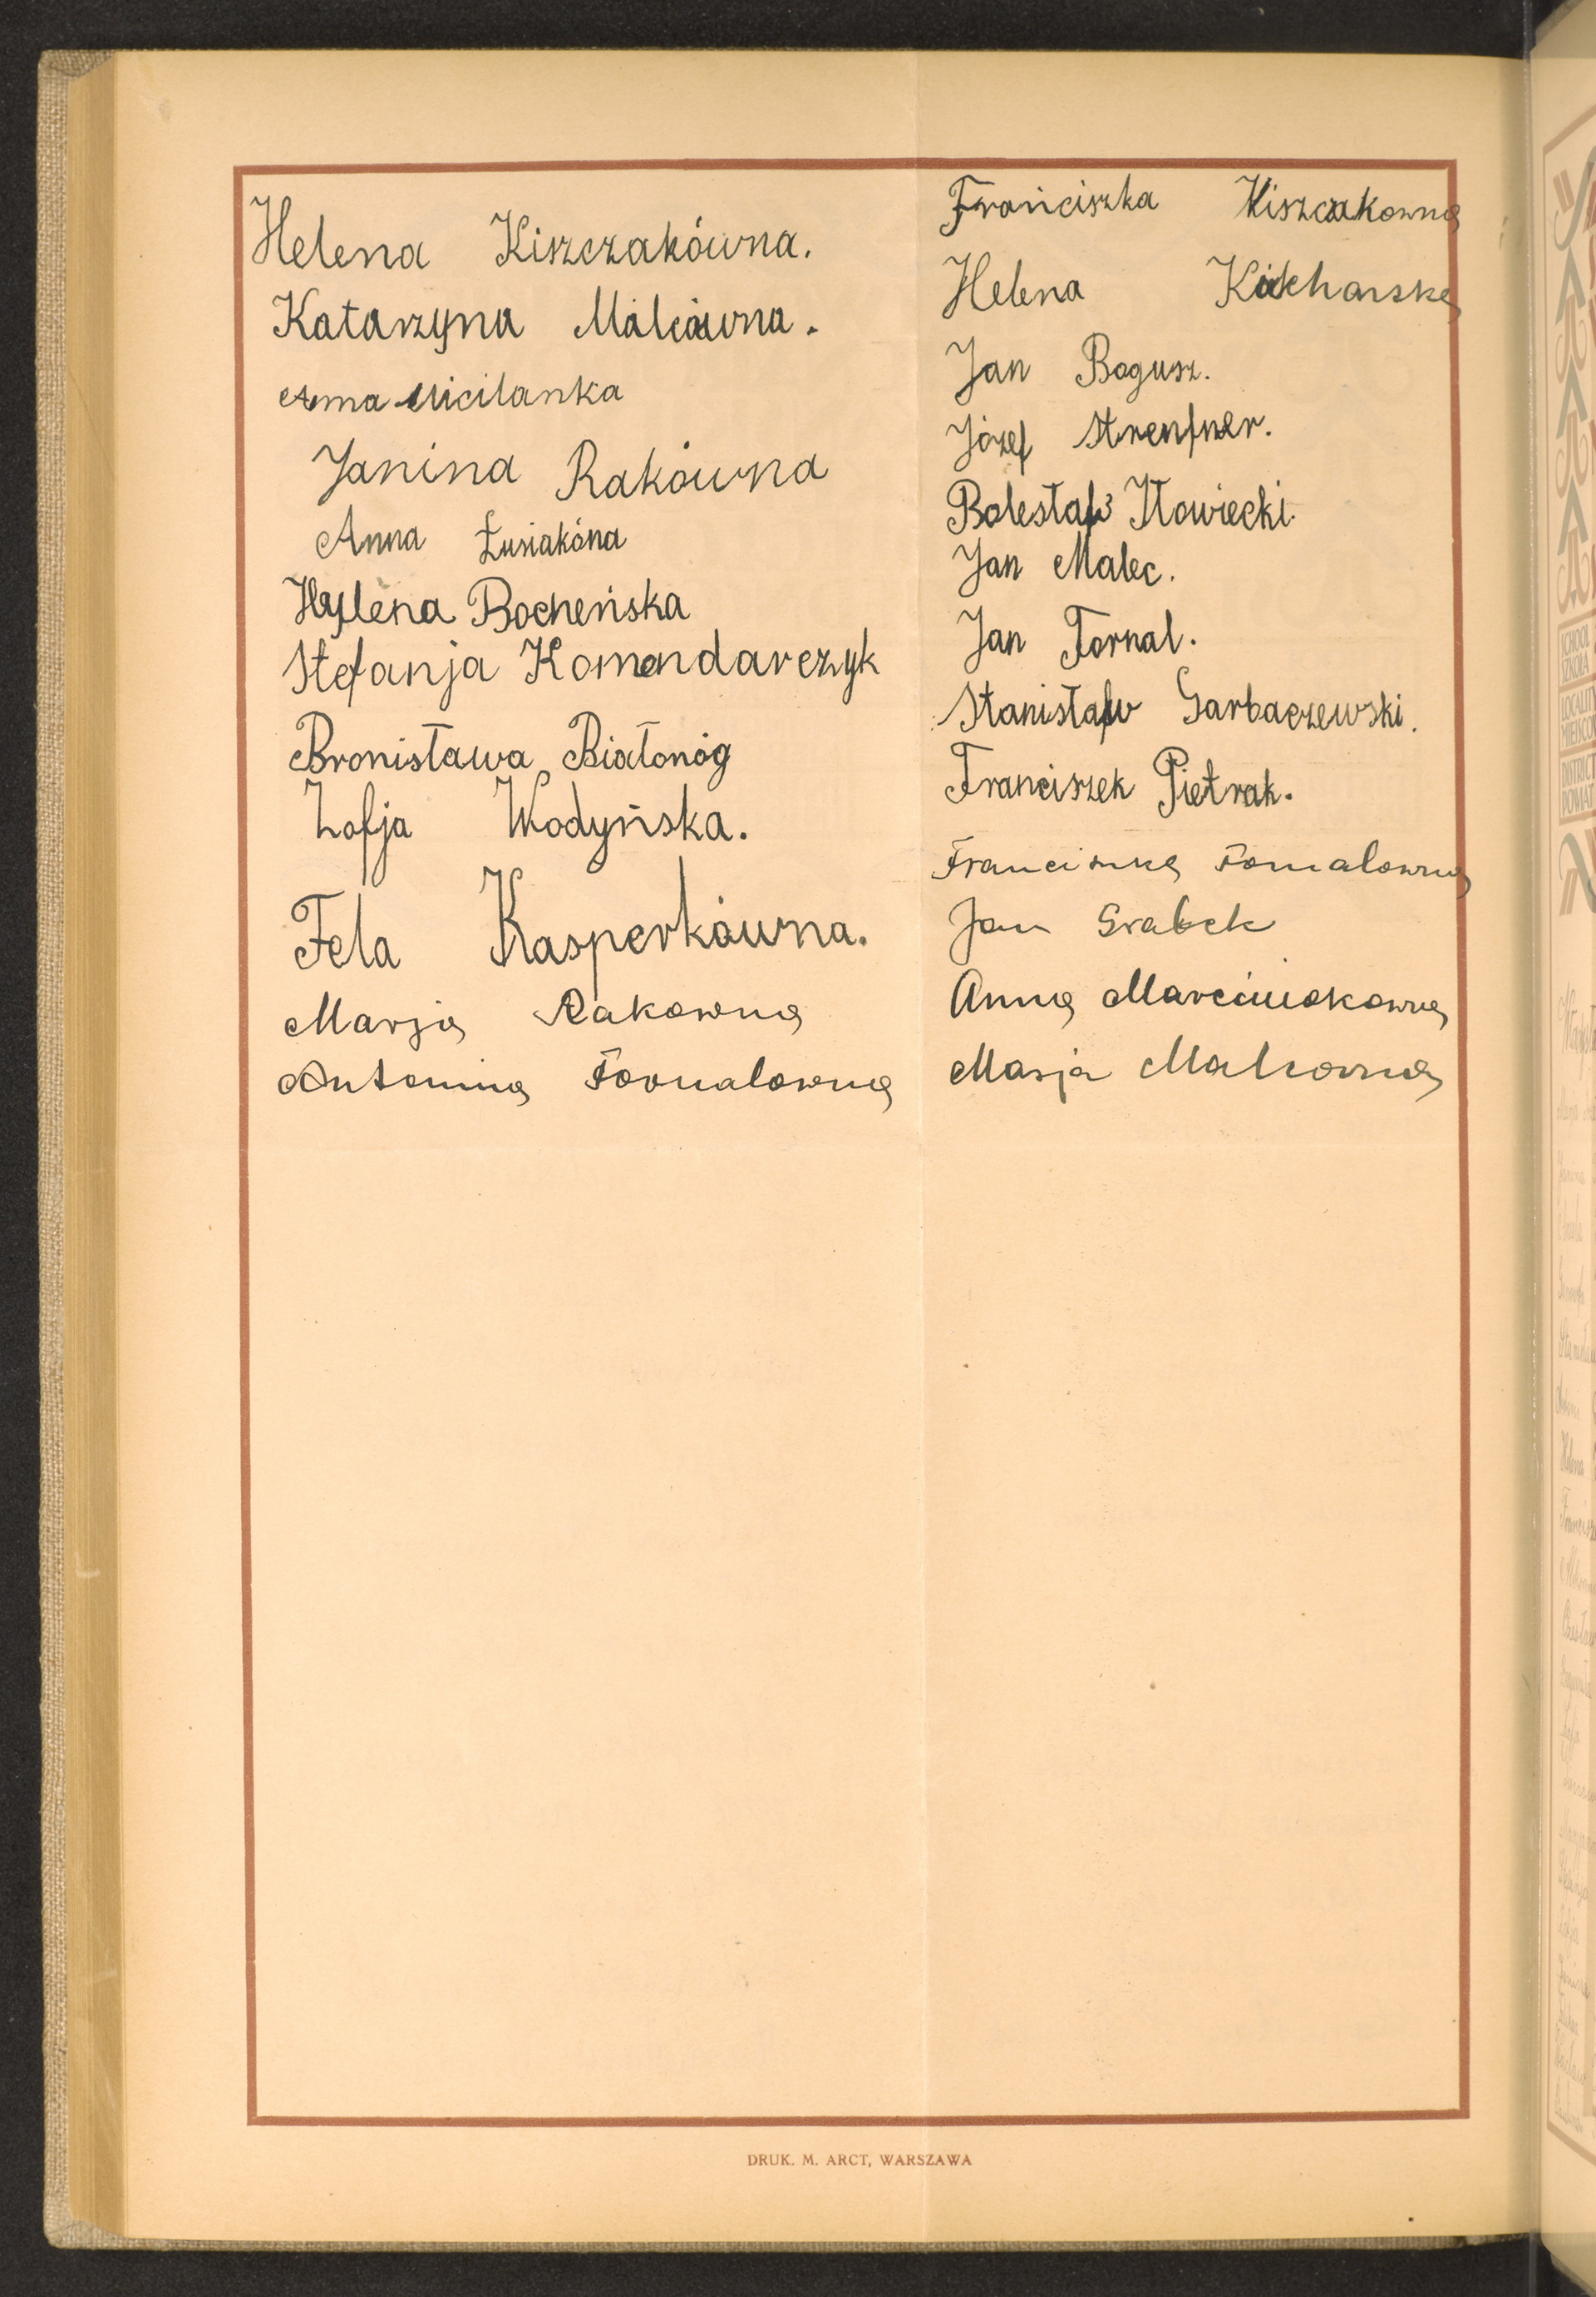 Helena Kiszczakówna.
Katarzyna Malcówna.
Anna Micilanka
Janina Rakówna
Anna Łusiakóna
Hylena Bocheńska
Stefanja Komendarczyk
Bronisława Białonóg
Zofja Wodyńska.
Fela Kasperkówna.
Marja Rakowna
Antonina Fornalowna
Franciszka Kiszczakowna
Helena Kucharska
Jan Bogusz.
Józef
Bolesław Iłowiecki.
Jan Malec.
Jan Fornal.
Stanisław Garbaczewski.
Franciszek Pietrak.
Franciszka Fornalowna
Jan Grabek
Anna Marciniakowna
Marja Malcowna
DRUK. M. ARCT, WARSZAWA